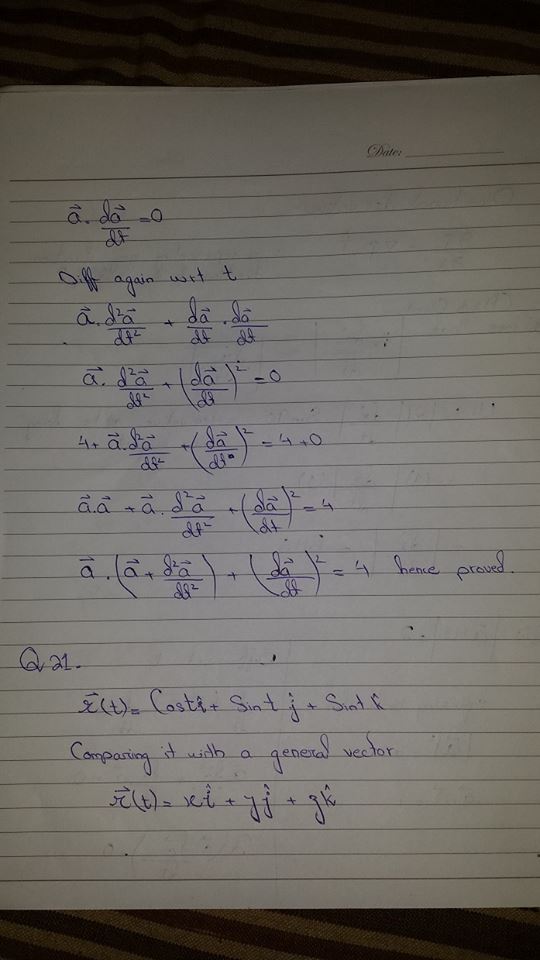 Date:
a⃗. da⃗/dt = 0
Diff again wrt t
a⃗. d²a⃗/dt² + da⃗/dt . da⃗/dt
a⃗. d²a⃗/dt² + (da⃗/dt)² = 0
4+ a⃗. d²a⃗/dt² + (da⃗/dt)² = 4+0
a⃗.a⃗ + a⃗. d²a⃗/dt² + (da⃗/dt)² = 4
a⃗. (a⃗ + d²a⃗/dt²) + (da⃗/dt)² = 4 hence proved.
Q 21.
r⃗(t) = Cost î + Sint ĵ + Sint k̂
Comparing it with a general vector
r⃗(t) = xî + yĵ + zk̂